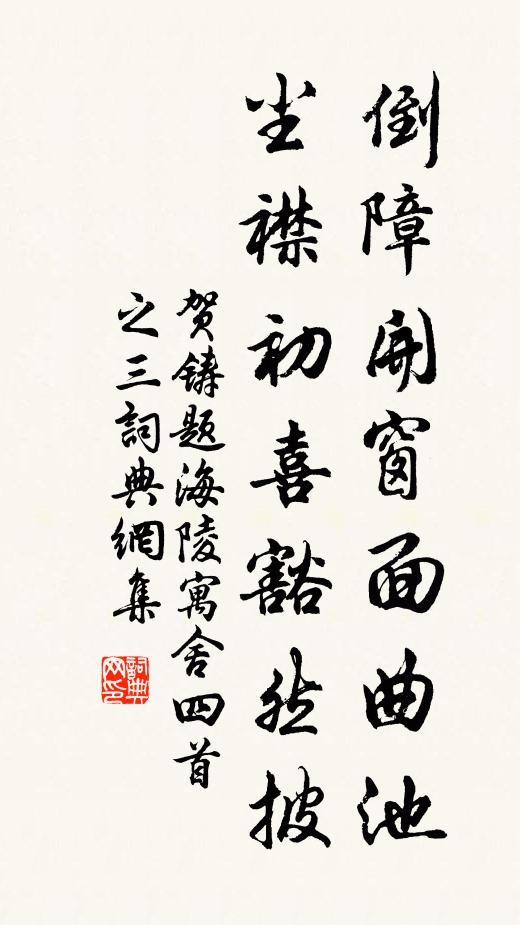 倒障開窗面曲池
尘襟初喜豁然披
贺鑄题海陵寓舍四首
之三詞典網集
詞典網印